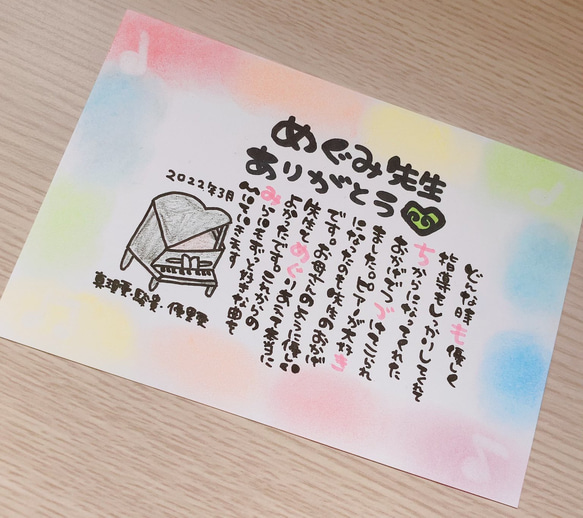 めぐみ先生
ありがとう
2022年3月
どんな時も優しく
指導もしっかりしてくれて
ちからになってくれた
おかげでつづけてこられ
ました。ピアノが大好き
になったのも先生のおかげ
です。お母さんのように優しい
先生とめぐりあえて本当に
よかったです。これからの
みらいもずっと好きな曲を
ひいていきます